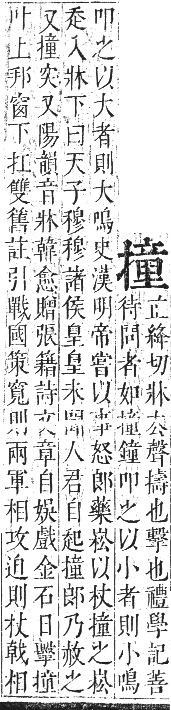 撞
直絳切牀去聲擣也擊也禮學記善
待問者如撞鐘叩之以小者則小鳴
叩之以大者則大鳴史漢明帝嘗以事怒郎藥崧以杖撞之崧
走入牀下曰天子穆穆諸侯皇皇未聞人君自起撞郎乃赦之
又撞突又陽韻音牀韓愈贈張籍詩文章自娛戲金石日擊撞
叶上邦窗下扛雙舊註引戰國策寬則兩軍相攻迫則杖戟相